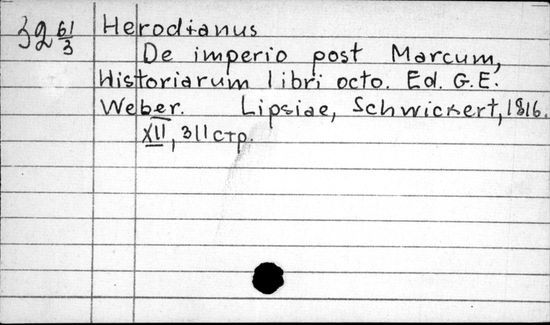 32 61/3 Herodianus
De imperio post Marcum,
Historiarum libri octo. Ed. G.E.
Weber. Lipsiae, Schwickert, 1816.
XII, 311 стр.